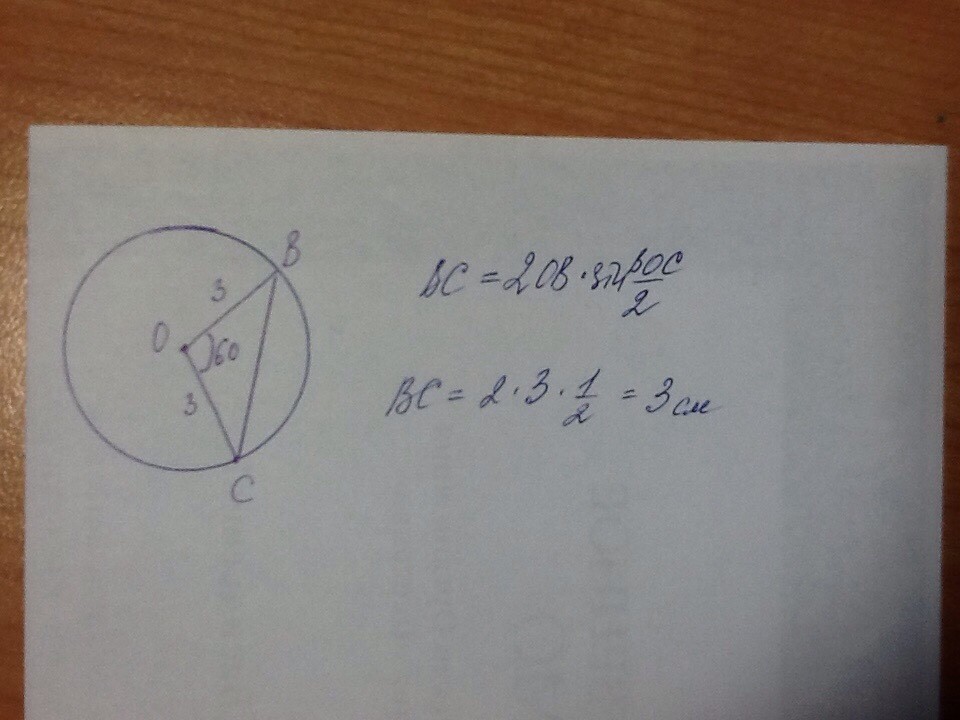 B
3
O
60
3
C
BC = 2OB · sin BOC/2
BC = 2 · 3 · 1/2 = 3 см